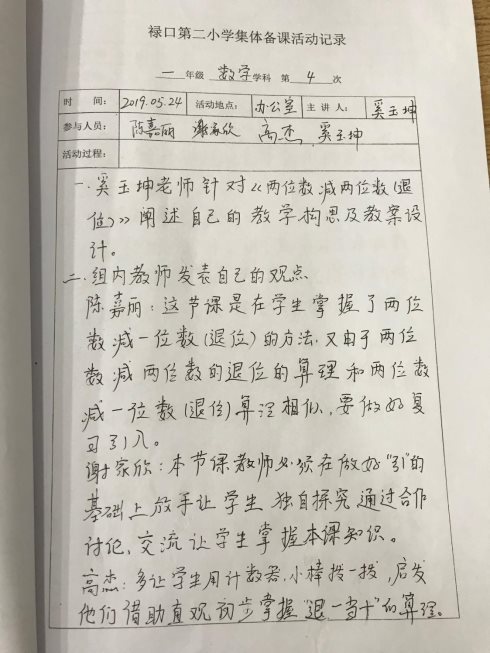 禄口第二小学集体备课活动记录
一 年级 数学 学科 第 4 次
时 间： 2019.05.24 活动地点： 办公室 主 讲 人： 奚玉坤
参与人员： 陈嘉丽 谢家欣 高杰 奚玉坤
活动过程：
一.奚玉坤老师针对《两位数减两位数(退
位)》阐述自己的教学构思及教案设
计。
二.组内教师发表自己的观点
陈嘉丽：这节课是在学生掌握了两位
数减一位数(退位)的方法.又由于两位
数减两位数的退位的算理和两位数
减一位数(退位)算法相似，要做好复
习引入。
谢家欣：本节课教师必须在做好"引"的
基础上放手让学生独自探究,通过合作
讨论,交流让学生掌握本课知识。
高杰：多让学生用计数器,小棒拨一拨,启发
他们借助直观初步掌握"退一当十"的算理。